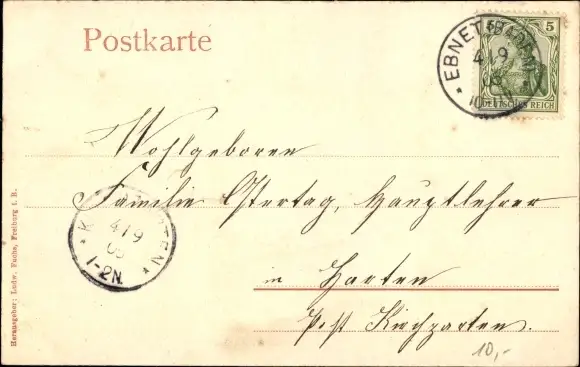 Postkarte
* EBNET (BADEN) *
4/9
10-11V
5
DEUTSCHES REICH
Wohlgeboren
Familie Ostertag, Hauptlehrer
in Zarten
Post Kirchzarten.
* KIRCHZARTEN *
4/9
1-2N.
Herausgeber: Ludw. Fuchs, Freiburg i. B.
10,-